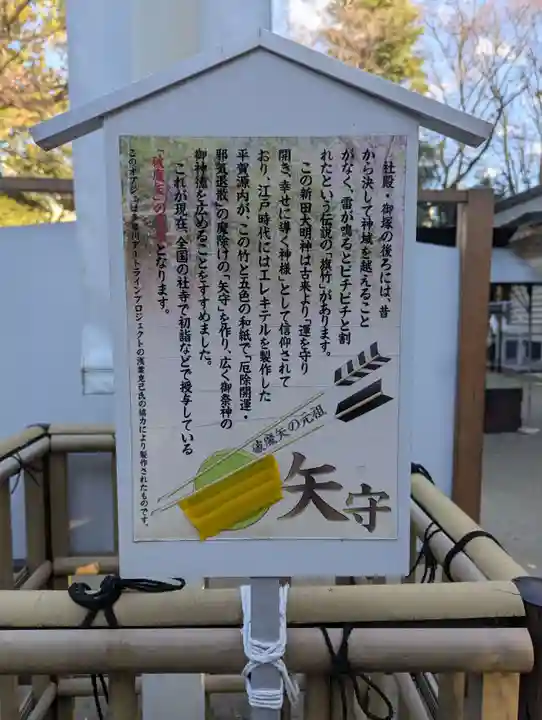 社殿・御塚の後ろには、昔
から決して神域を越えること
がなく、雷が鳴るとピチピチと割
れたという伝説の「旗竹」があります。
この新田大明神は古来より「運を守り
開き、幸せに導く神様」として信仰されて
おり、江戸時代にはエレキテルを製作した
平賀源内が、この竹と五色の和紙で、「厄除開運・
邪気退散」の魔除けの「矢守」を作り、広く御祭神の
御神徳を広めることをすすめました。
これが現在、全国の社寺で初詣などで授与している
「破魔矢」の元祖となります。
このオブジェは多摩川アートラインプロジェクトの浅葉克己氏の協力により製作されたものです。
破魔矢の元祖
矢守